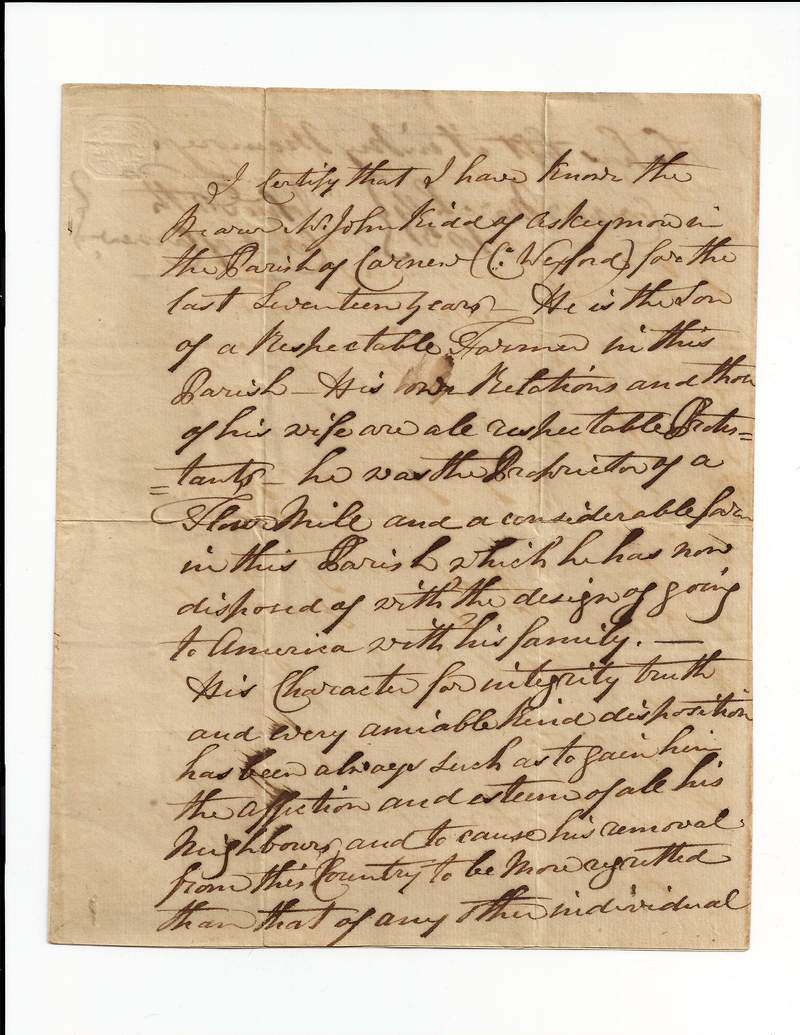 I Certify that I have known the
Bearer Mr. John Kidd of Askeymore in
the Parish of Carnew (Co. Wexford) for the
last Seventeen years – He is the Son
of a Respectable Farmer in this
Parish – His own Relations and those
of his wife are all respectable Protes=
=tants – he was the Proprietor of a
Flour Mill and a considerable farm
in this Parish which he has now
disposed of with the design of going
to America with his family. —
His Character for integrity truth
and every amiable kind disposition
has been always such as to gain him
the affection and esteem of all his
Neighbours, and to cause his removal
from this Country to be More regretted
than that of any other individual